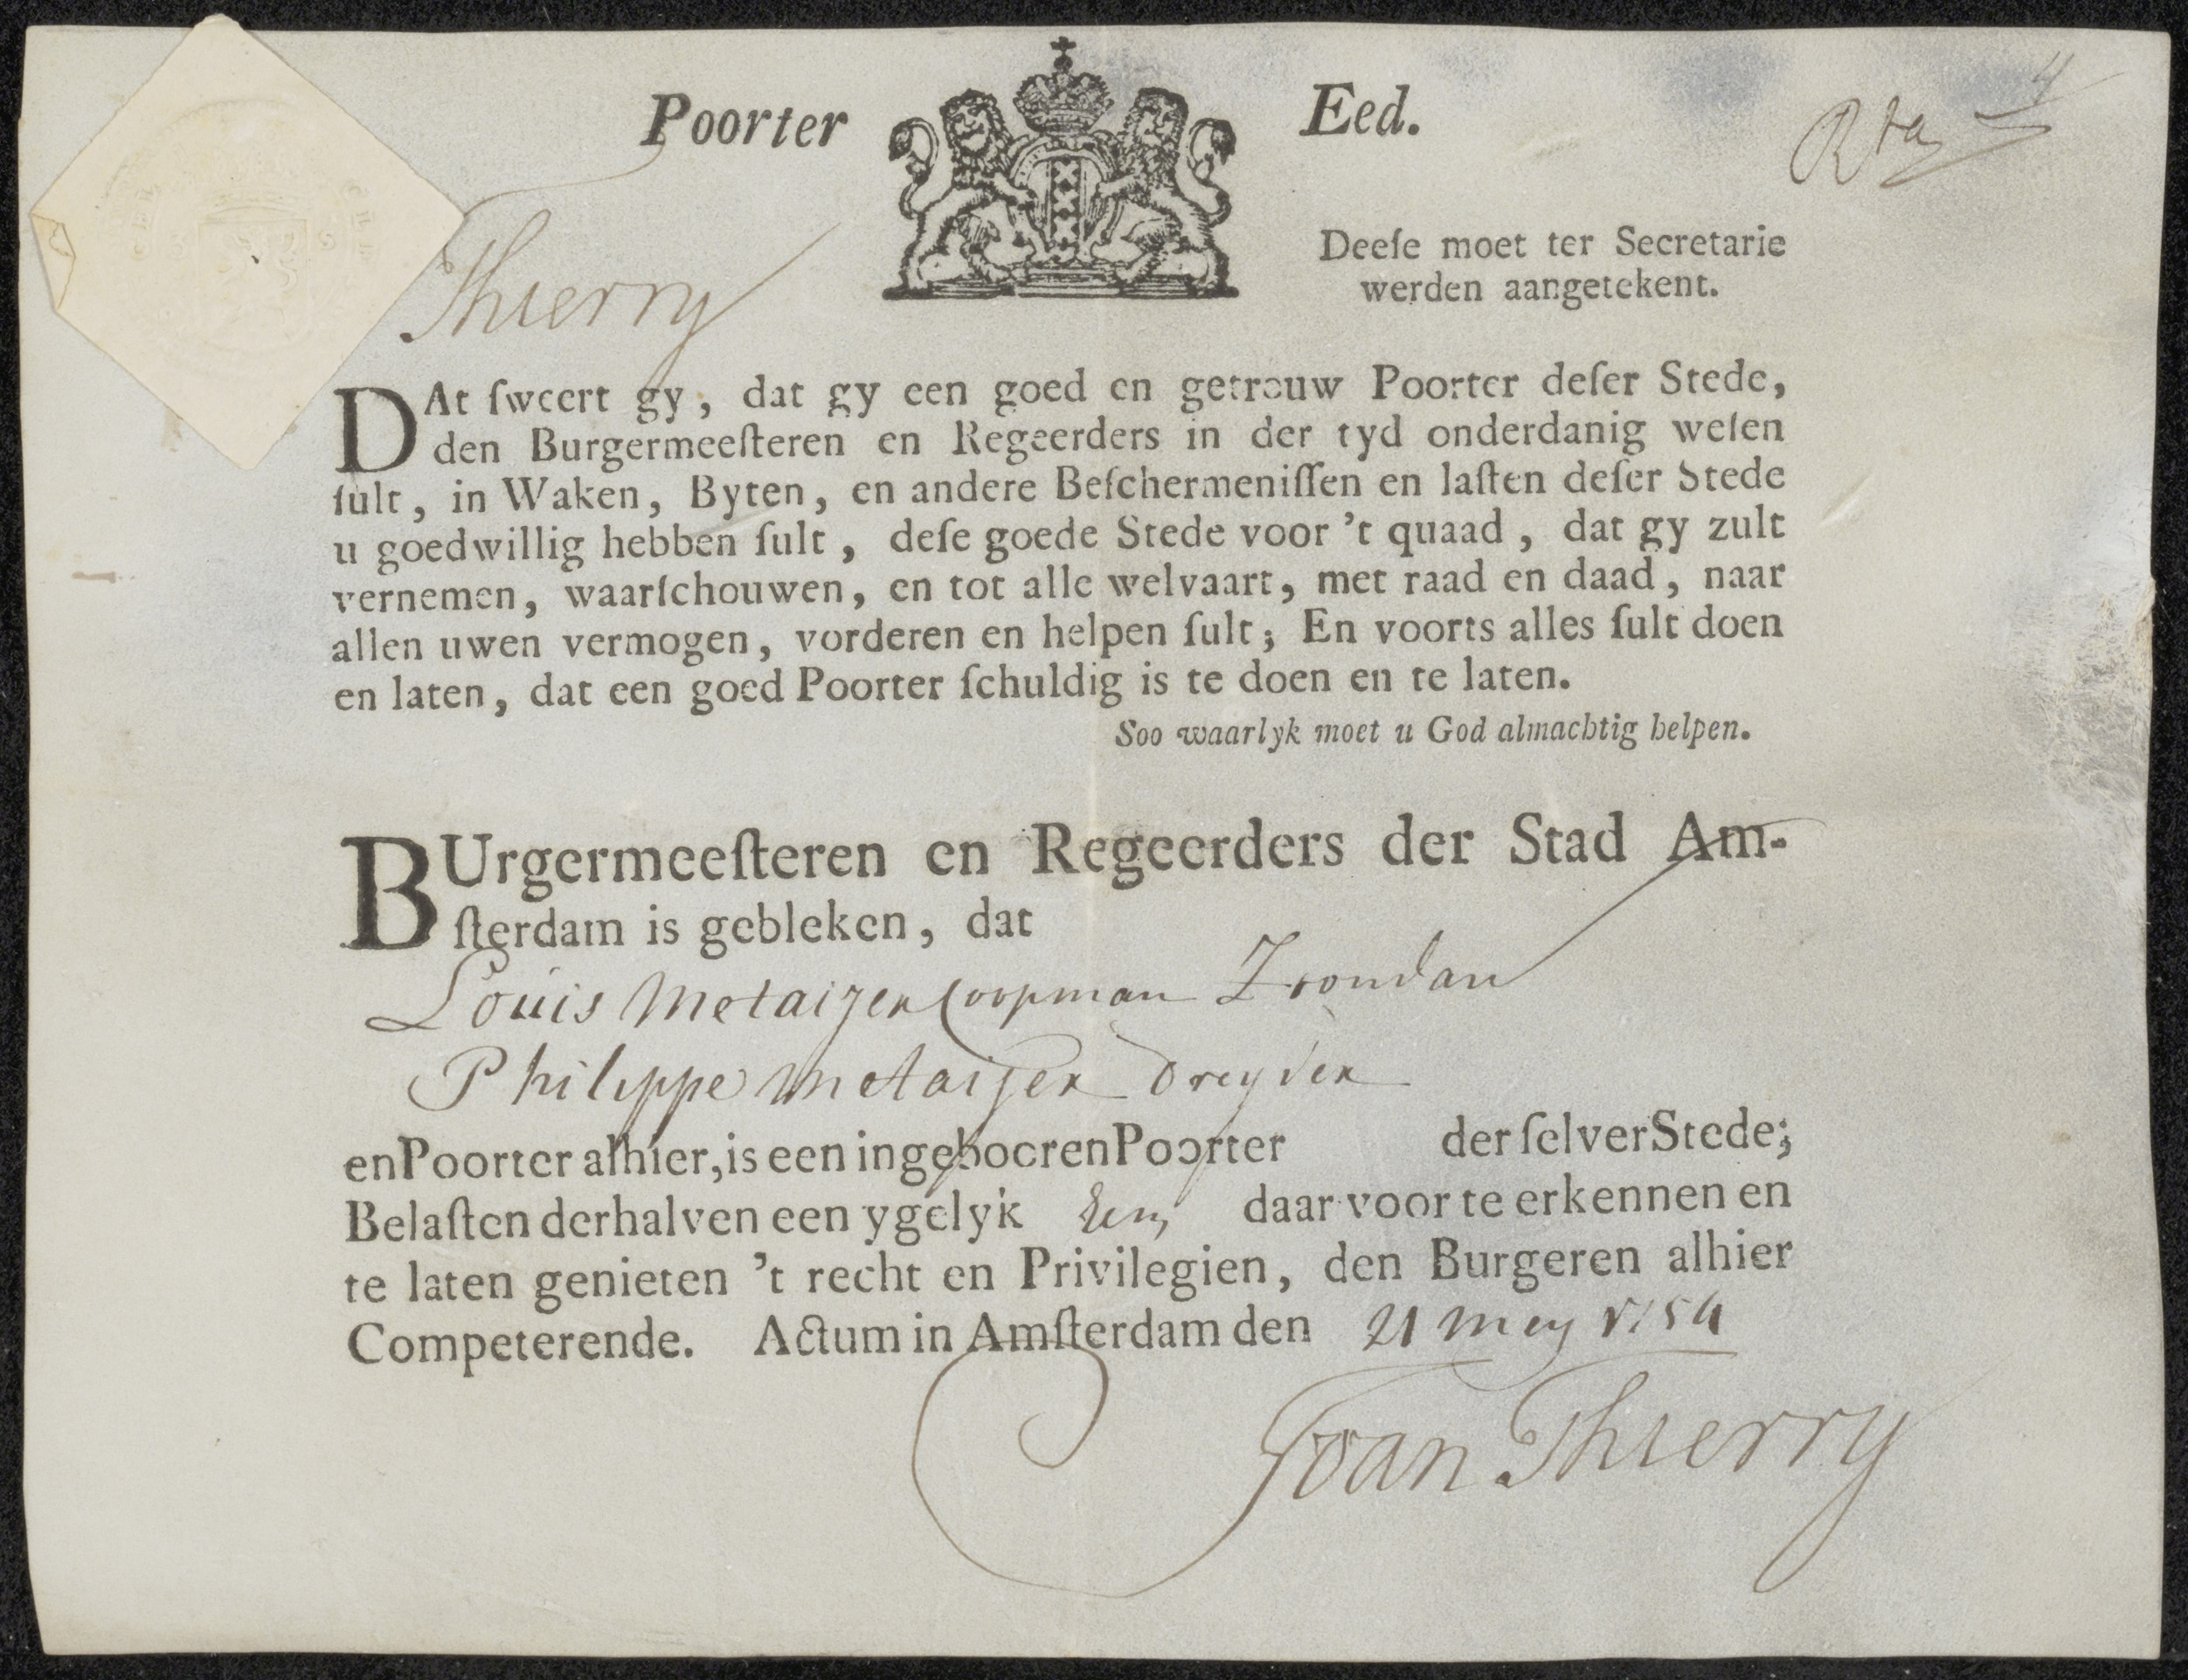 Poorter Eed.
Thierry
Deeſe moet ter Secretarie
werden aangetekent.
DAt ſweert gy, dat gy een goed en getrouw Poorter deſer Stede,
den Burgermeeſteren en Regeerders in der tyd onderdanig weſen
ſult, in Waken, Byten, en andere Beſchermeniſſen en laſten deſer Stede
u goedwillig hebben ſult, deſe goede Stede voor 't quaad, dat gy zult
vernemen, waarſchouwen, en tot alle welvaart, met raad en daad, naar
allen uwen vermogen, vorderen en helpen ſult; En voorts alles ſult doen
en laten, dat een goed Poorter ſchuldig is te doen en te laten.
Soo waarlyk moet u God almachtig helpen.
BUrgermeeſteren en Regeerders der Stad Am-
ſterdam is gebleken, dat
Louis Metaijer Coopman Zoon van
Philippe Metaijer
en Poorter alhier, is een ingebooren Poorter der ſelver Stede;
Belaſten derhalven een ygelyk hem daar voor te erkennen en
te laten genieten 't recht en Privilegien, den Burgeren alhier
Competerende. Actum in Amſterdam den 21 Mey 1754
Joan Thierry